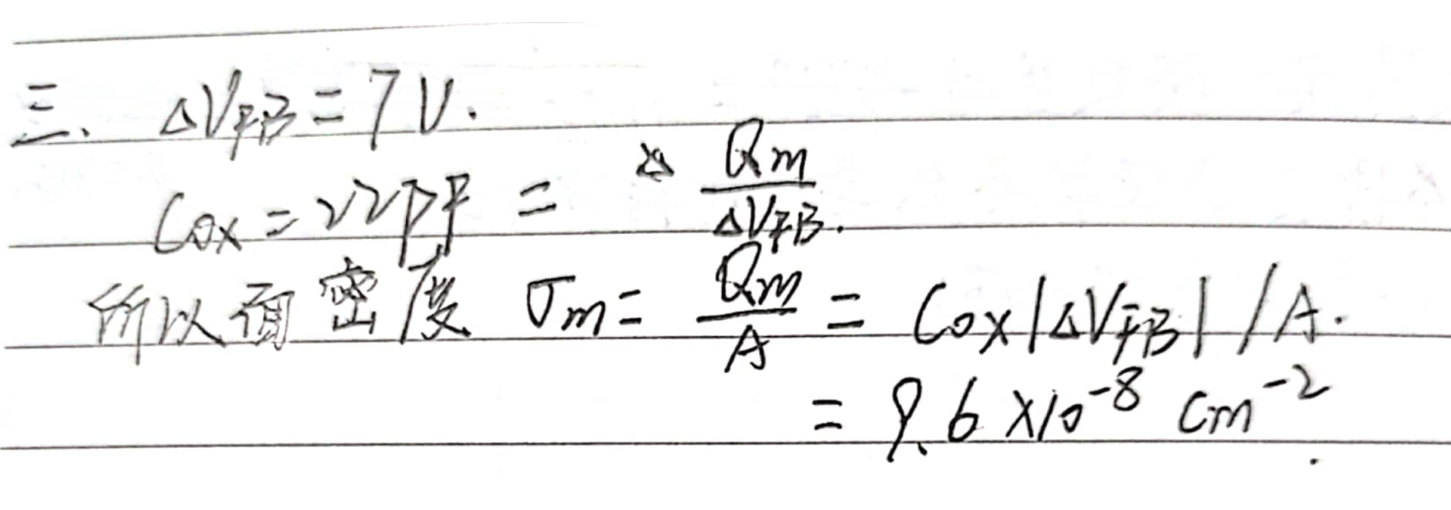 三、 ΔV_FB = 7V.
Cox = 22PF = Qm/ΔV_FB.
所以面密度 σm = Qm/A = Cox|ΔV_FB|/A.
= 9.6 × 10^-8 cm^-2.